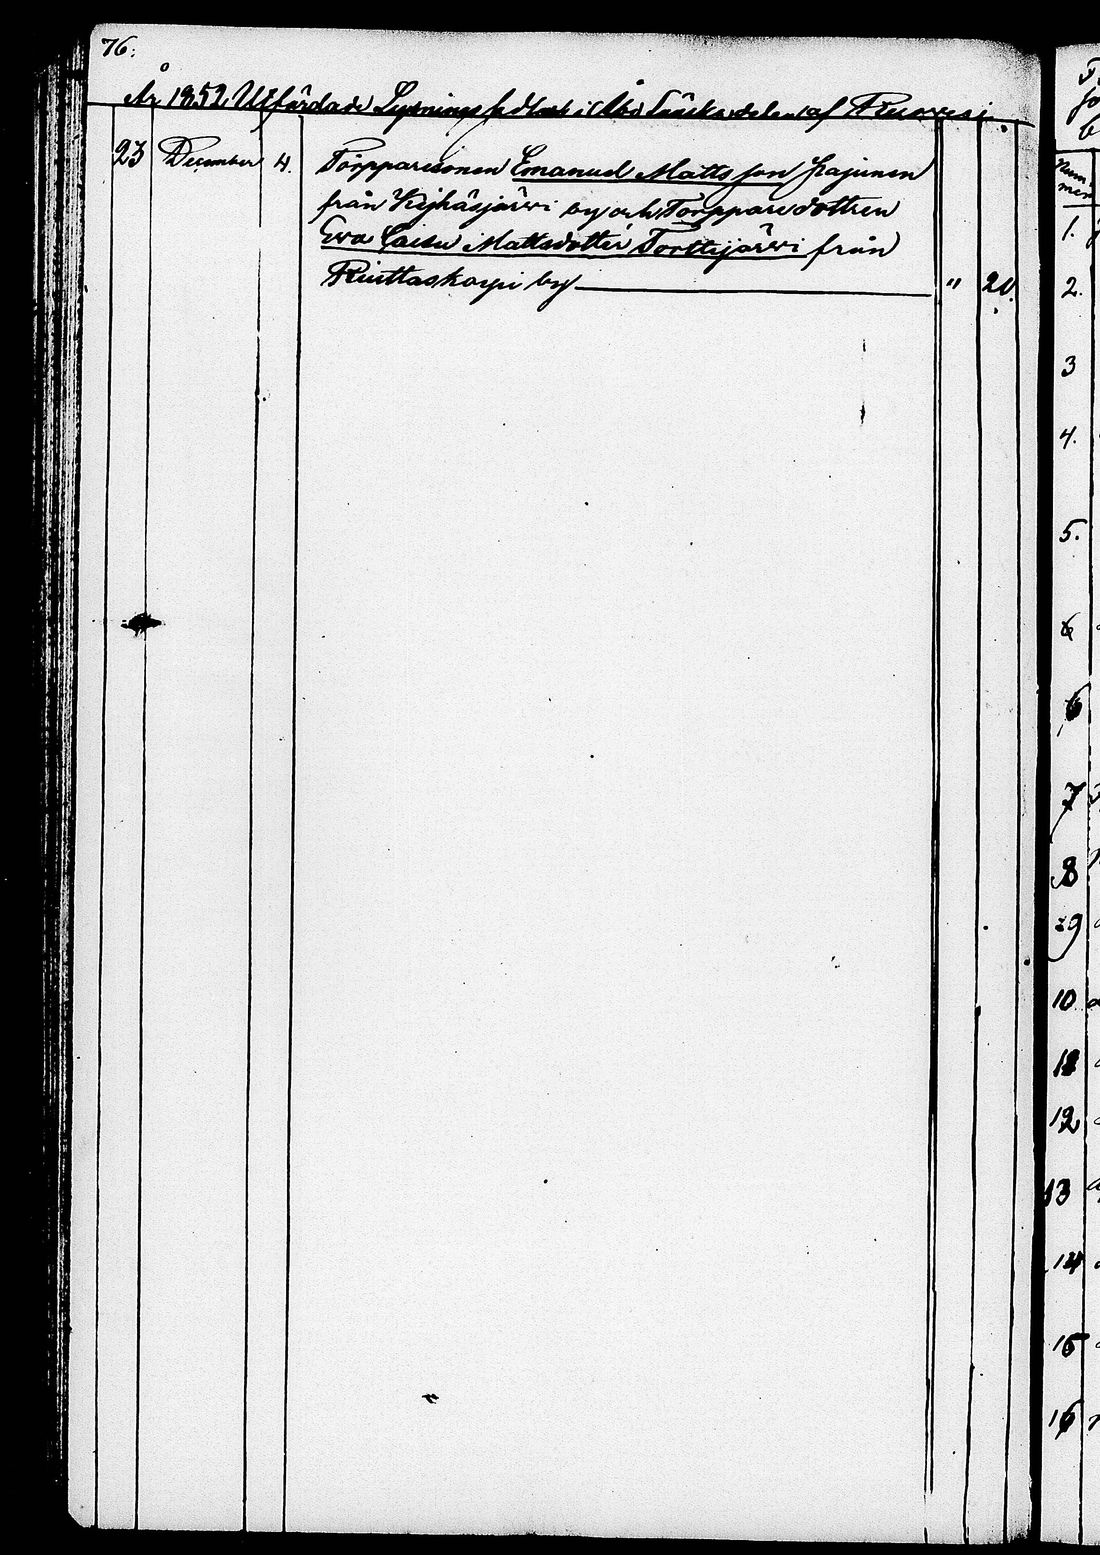 76.
År 1852 Utfärdade Lysningssedlar i Åbo Länsdelen af Ruovesi.
23 December 4. Torpparesonen Emanuel Mattsson Kajunen
från Keihäsjärvi by och Torpparedottren
Eva Caisa Mattsdotter Torttijärvi från
Ruittaskorpi by " 20.
Num-
mer
1.
2.
3
4.
5.
6
6
7
8
9
10
11
12
13
14
15
16